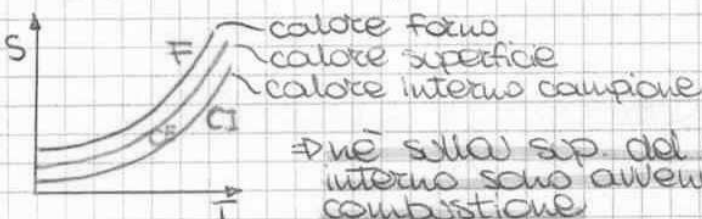 S
F
CE
CI
T
calore forno
calore superficie
calore interno campione
⇒ nè sulla sup. del
interno sono avven
combustione